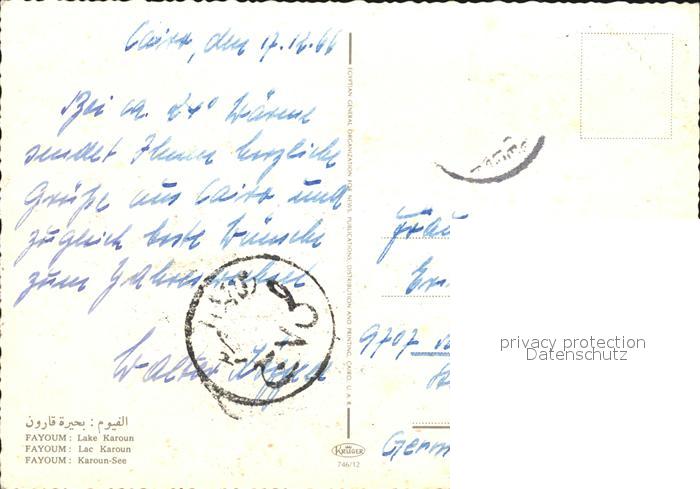 Cairo, den 17.12.66
Bei ca. 24° Wärme
sendet Ihnen herzliche
Grüße aus Cairo und
zugleich beste Wünsche
zum Jahreswechsel
Walter
الفيوم : بحيرة قارون
FAYOUM : Lake Karoun
FAYOUM : Lac Karoun
FAYOUM : Karoun-See
EGYPTIAN GENERAL ORGANIZATION FOR NEWS, PUBLICATIONS, DISTRIBUTION AND PRINTING, CAIRO, U.A.R.
KRÜGER
746/12
Frau
9707
Germ
privacy protection
Datenschutz